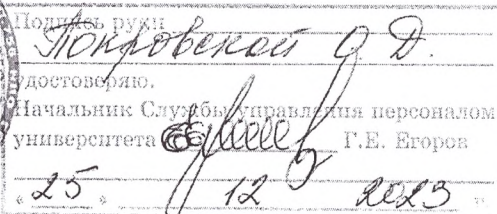 Подпись руки
Покровской О.Д.
удостоверяю.
Начальник Службы управления персоналом
университета Г.Е. Егоров
« 25 » 12 2023 г.